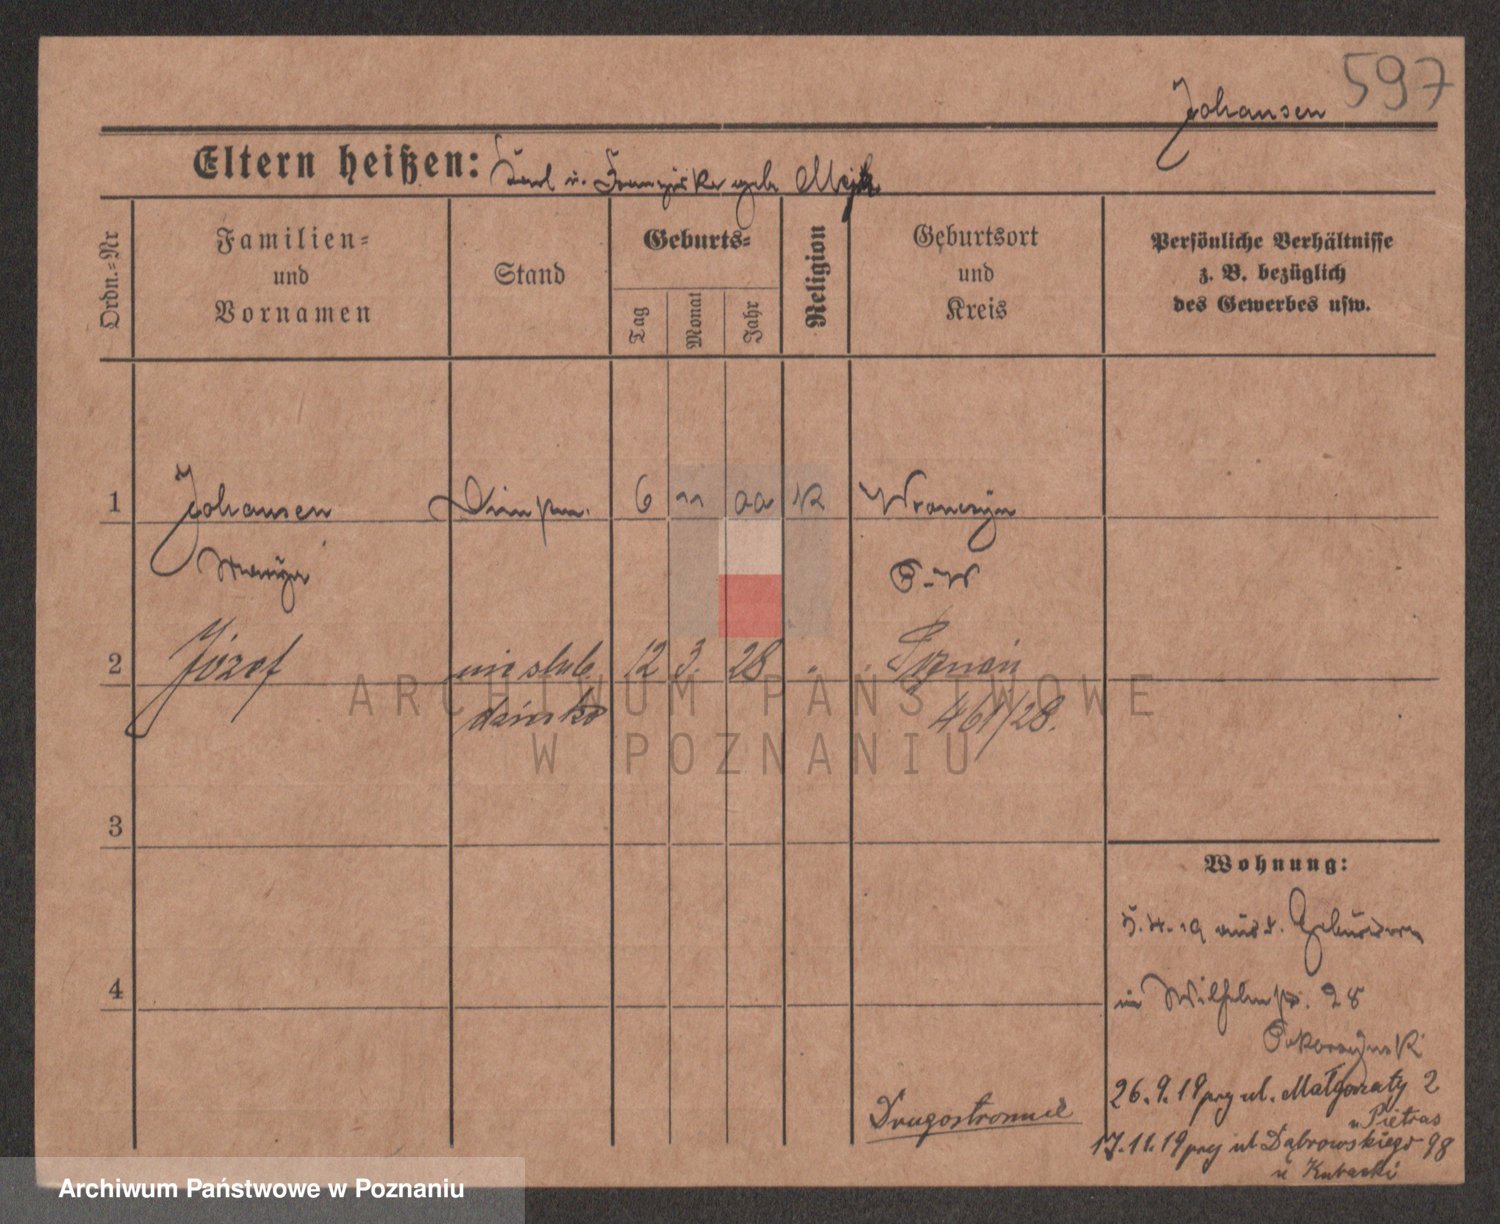 597
Johansen
Eltern heißen: Karl u. Franziska geb.
Ordn.=Nr
Familien=
und
Vornamen
Stand
Geburts=
Tag
Monat
Jahr
Religion
Geburtsort
und
Kreis
Persönliche Verhältnisse
z. B. bezüglich
des Gewerbes usw.
1 Johansen 6 11 00 K Wronczyn
P-W
2 Józef nieślub. 12 3. 28 " Poznań
dziecko 461/28.
3
Wohnung:
4
in Wilhelmstr. 28
26.9.19 przy ul. Małgorzaty 2
u Pietras
17.11.19 przy ul Dąbrowskiego 98
u Kubacki
ARCHIWUM PAŃSTWOWE
W POZNANIU
Archiwum Państwowe w Poznaniu